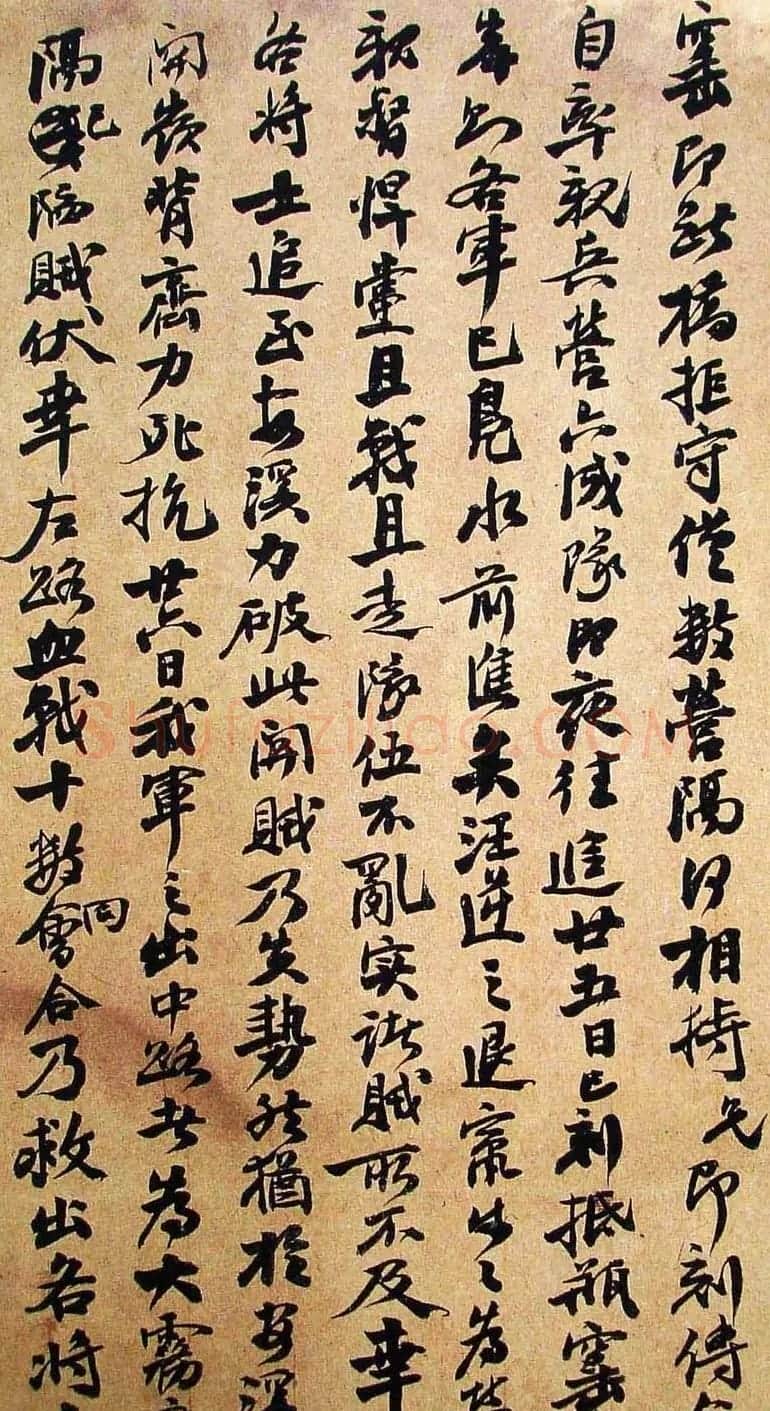 窰即斷橋拒守僅數營隔河相持兄即刻傳
自率親兵營六成隊即夜往進廿五日巳刻抵瓶窰
各軍已鳧水前進矣汪逆之退甯也々為
親督悍黨且戰且走隊伍不亂實諸賊所不及幸
各將士追至安溪力破此關賊乃失勢然猶於安溪
關嶺背齊力死抗廿六日我軍之出中路者為大霧
隔配隘賊伏幸左路血戰十數會合乃救出各將
同
shufaziliao.COM